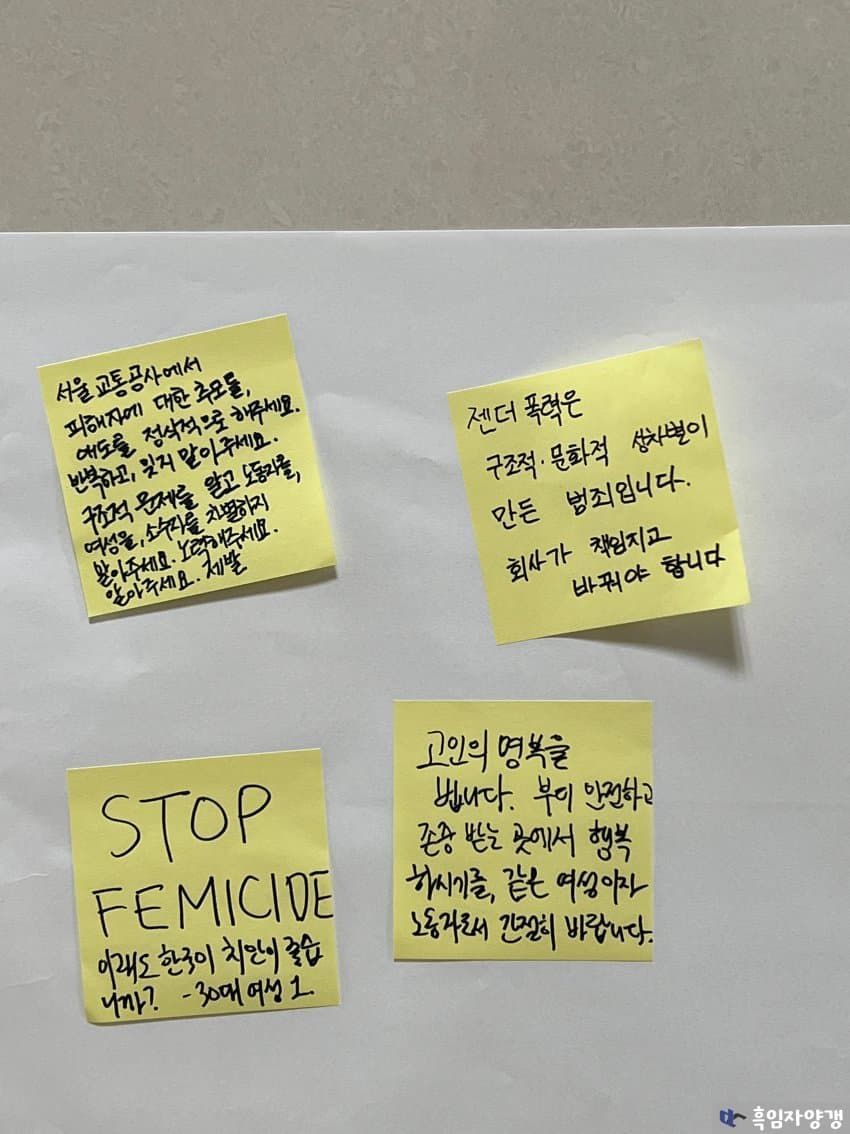 서울 교통공사에서
피해자에 대한 추모를,
애도를 정식적으로 해주세요.
반복하고, 잊지 말아주세요.
구조적 문제를 알고 노동자을,
여성을, 소수자를 차별하지
말아주세요. 노력해주세요.
알아주세요. 제발
젠더 폭력은
구조적·문화적 성차별이
만든 범죄입니다.
회사가 책임지고
바꿔야 합니다
STOP
FEMICIDE
이래도 한국이 치안이 좋습
니까? - 30대 여성 1.
고인의 명복을
빕니다. 부디 안전하고
존중 받는 곳에서 행복
하시기를, 같은 여성이자
노동자로서 간절히 바랍니다.
흑임자양갱